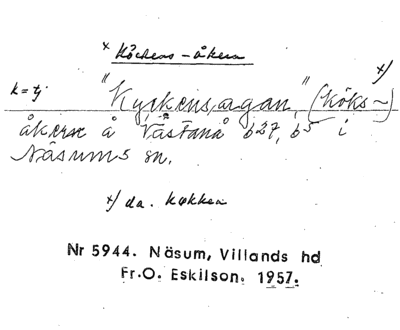 x Köckens-åkern
k = tj
"Kyckensagan," (köks~) x/
åkern å Västanå b27, b5 i
Näsums sn.
x/ da. køkken
Nr 5944. Näsum, Villands hd
Fr.O. Eskilson. 1957.